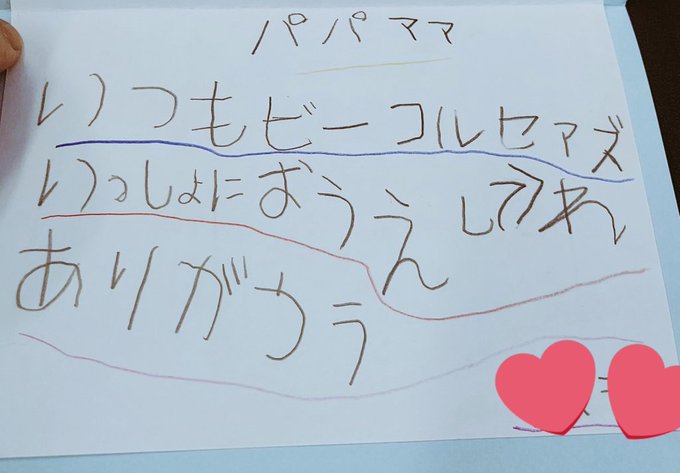 パパママ
いつもビーコルセァズ
いっしょにおうえんしてくれ
ありがとう